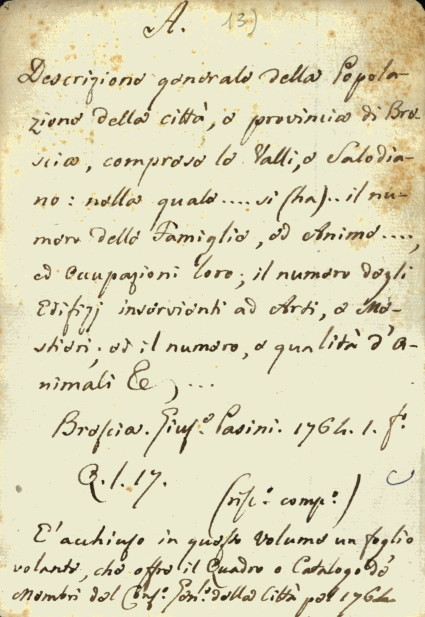 A. 13)
Descrizione generale della Popola-
zione della città, e provincia di Bre-
scia, comprese le Valli, e Salodia-
no: nella quale .... si (ha) .. il nu-
mero delle Famiglie, ed Anime ....,
ed occupazioni loro; il numero degli
Edifizj inservienti ad Arti, e Me-
stieri; ed il numero, e qualità d'a-
nimali &c, ...
Brescia. Gius.e Pasini. 1764. 1. f.o
Q. 1. 17.
comp.o)
E' acchiuso in questo volume un foglio
volante, che offre il Quadro o Catalogo de'
Membri del Cons.o Gen.le della Città per 1764